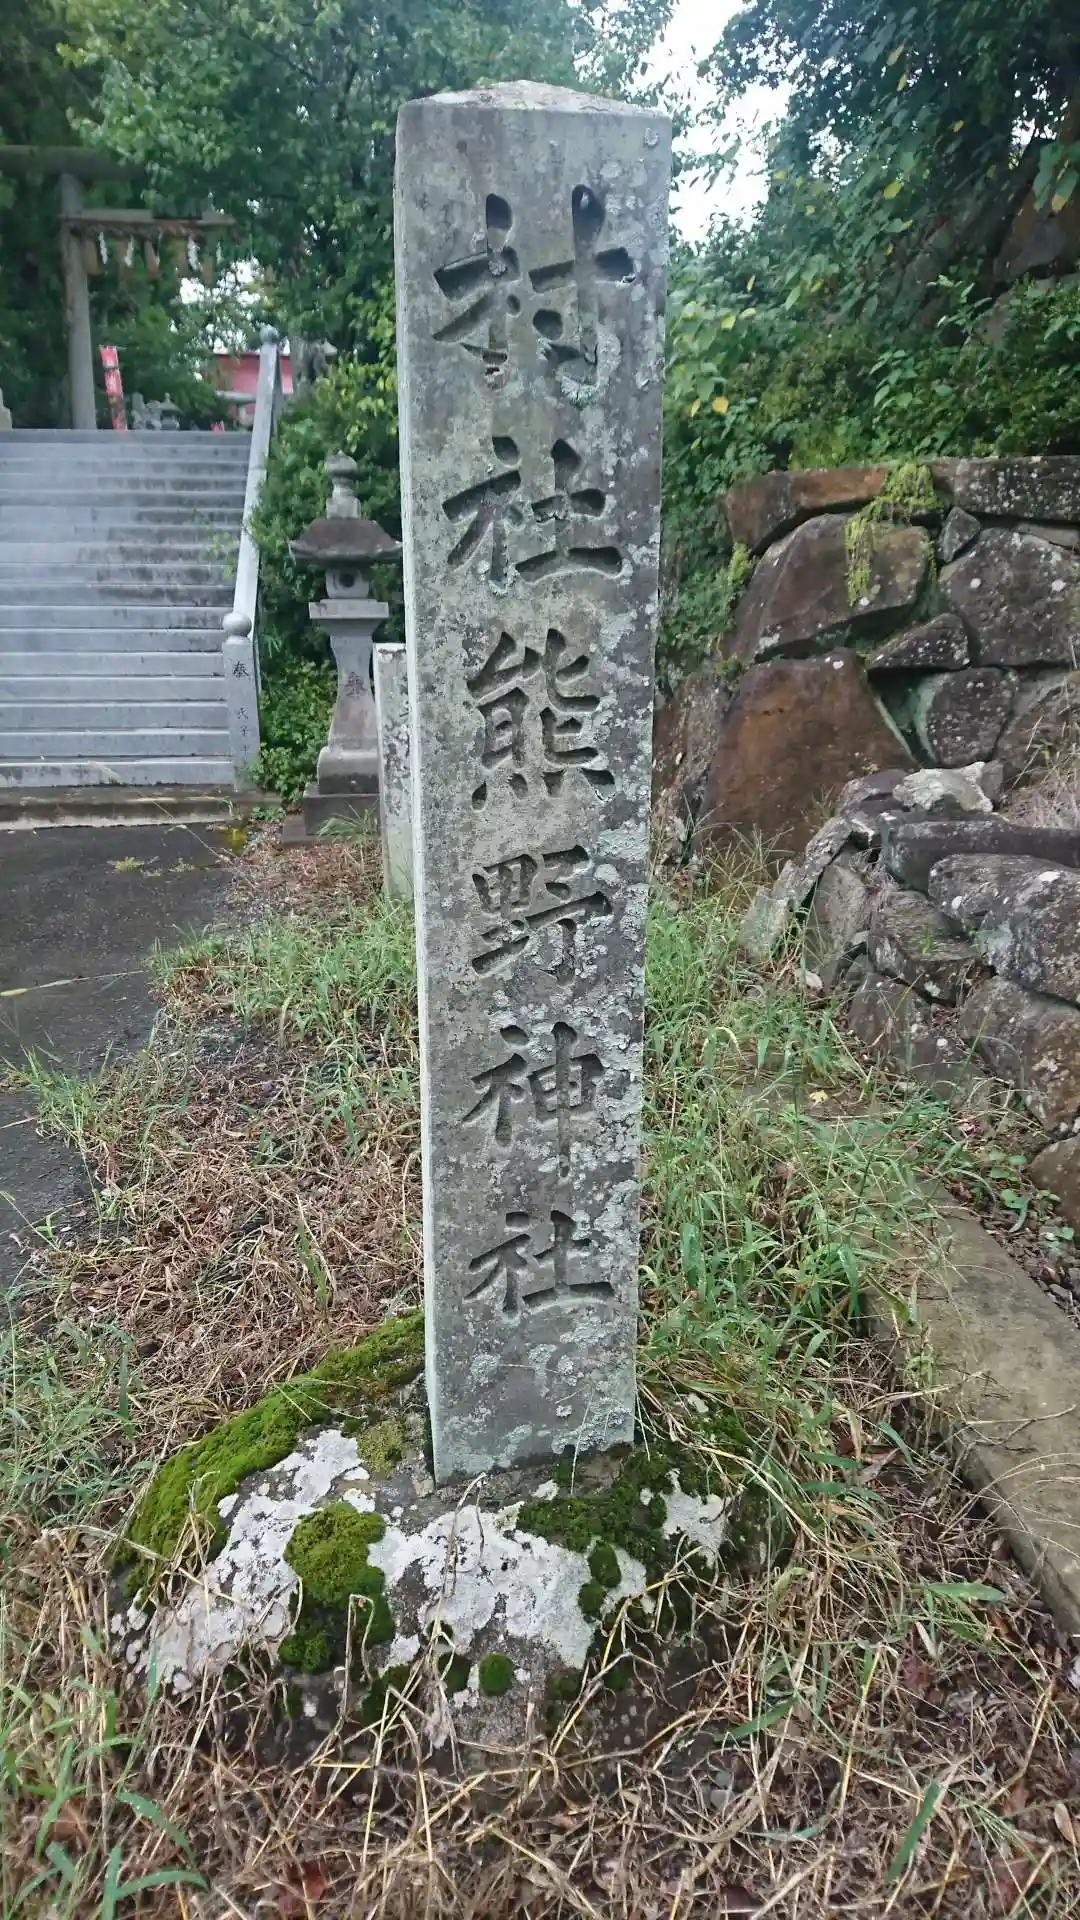 村社熊野神社
奉
奉